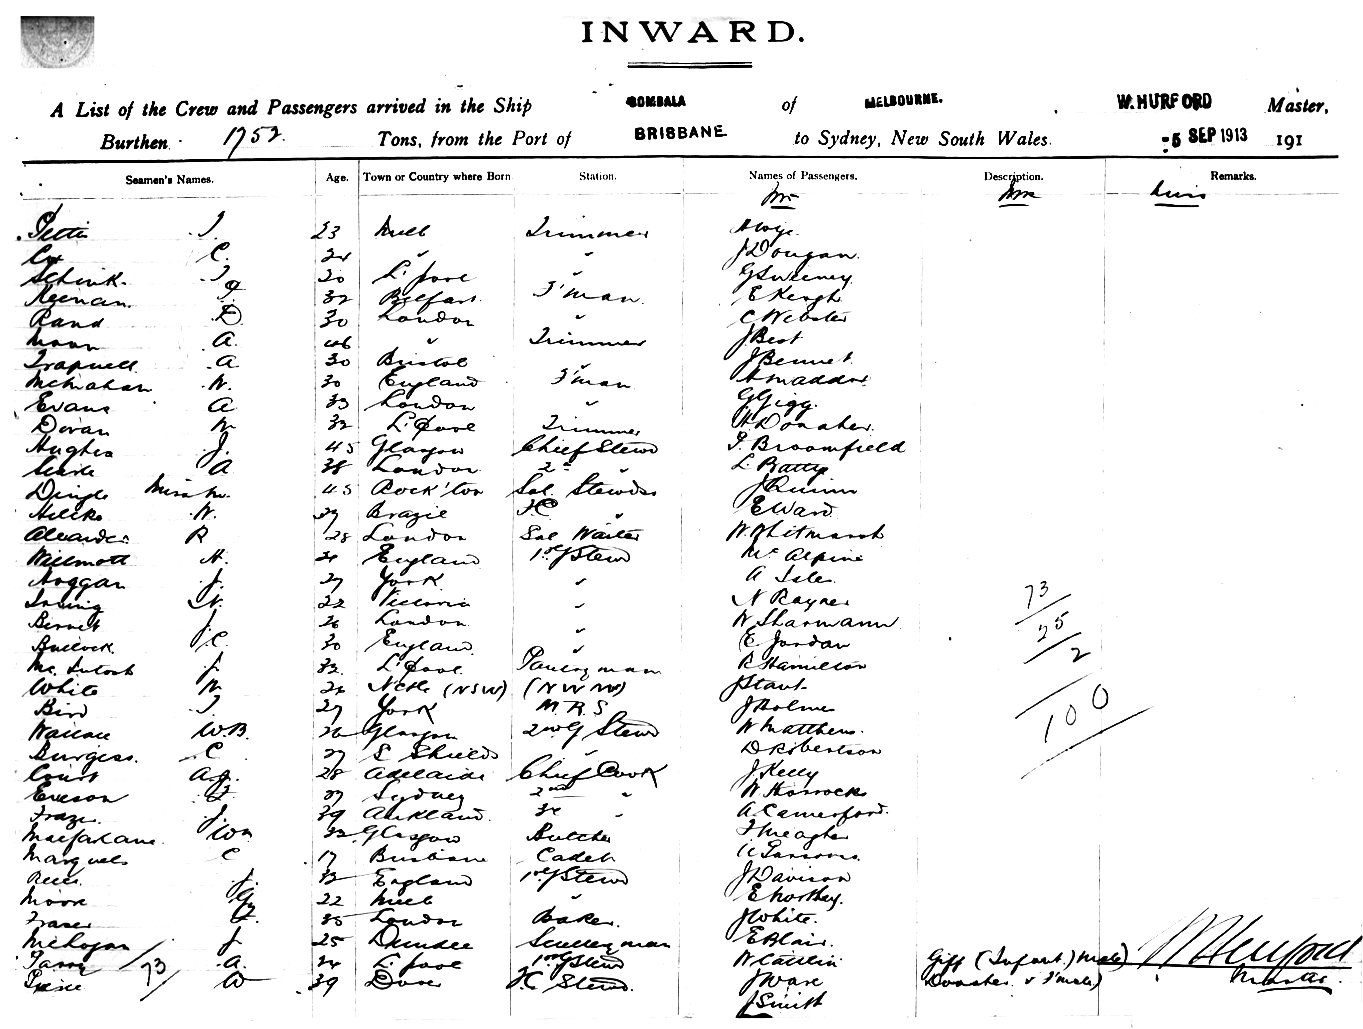 INWARD.
A List of the Crew and Passengers arrived in the Ship BOMBALA of MELBOURNE. W. HURFORD Master,
Burthen 1752 Tons, from the Port of BRISBANE to Sydney, New South Wales. 5 SEP 1913 191
Seamen's Names. Age. Town or Country where Born Station. Names of Passengers. Description. Remarks.
Mr Mrs Miss
23 Melb Trimmer
Cox C. 24 " " J Dougan
Schink 20 L'pool " G Sweeney
Keenan 32 Belfast F'man E Keogh
Rand D 30 London " C Webster
A. 46 " Trimmer J Best
Trapnell A 30 Bristol " J Bennet
McMahan W. 30 England F'man
Evans A 33 London " G Gigg
Doran M 32 L'pool Trimmer H Donaher
Hughes J. 45 Glasgow Chief Stewd T. Broomfield
A 38 London 2nd " L Batty
Dingle Miss M. 45 Rock'ton Sal. Stewdss J Quinn
W. 39 Brazil " E Ward
Alexander R 28 London Sal Waiter W Whitmarsh
Willmott H. 21 England Stewd McAlpine
Hoggan J. 27 York " A Isles
22 Victoria " N Rayner
Bennet J 26 London " W Sharmann
Bullock C. 30 England " E Jordan
McIntosh J 32 L'pool Pantryman R Hamilton
White M 22 Nctle (NSW) (N W W)
Bird 27 York M R S J Holme
Wallace W.B. 26 Glasgow 2nd G Stewd W Matthews
Burgess C 27 S Shields " D Robertson
Court A.J. 28 Adelaide Chief Cook J Kelly
Eveson 37 Sydney 2nd " W Horrocks
J. 39 Aukland. 3rd " A Camerford.
Macfarlane Wm 32 Glasgow Butcher T Meagher
Marques C 17 Brisbane Cadet
Rees J. 32 England Stewd J Davison
Moore 22 Melb " E Northey.
Fraser 35 London Baker. J White.
J 25 Dundee Sculleryman E Blair.
Parry A. 24 L'pool Stewd W Catlin
W 39 Dover Stewd. J Ware
J Smith
73
73
25
2
100
Giff (Infant) Male)
Donaher & F'male)
W Hurford
Master.